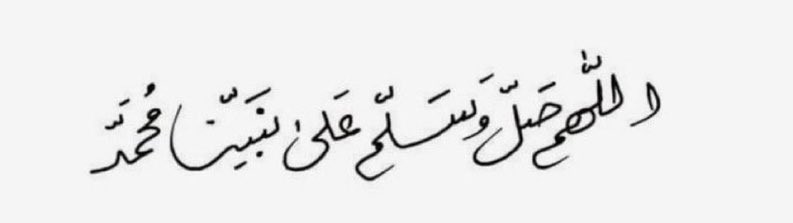 اللّهم صَلّ وَسَلّم عَلىٰ نبَيّنا مُحمَّد